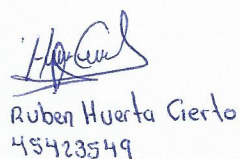 Ruben Huerta Cierto
45423549